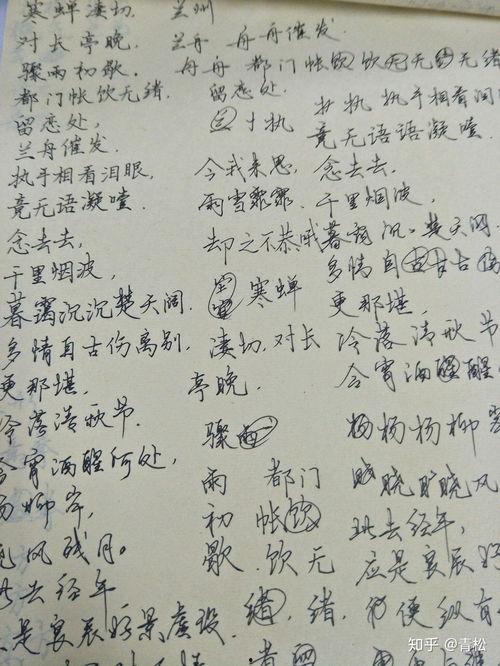 寒蝉凄切.
对长亭晚,
骤雨初歇.
都门帐饮无绪
留恋处,
兰舟催发.
执手相看泪眼,
竟无语凝噎.
念去去,
千里烟波,
暮霭沉沉楚天阔.
多情自古伤离别,
更那堪,
冷落清秋节.
今宵酒醒何处,
杨柳岸,
晓风残月。
此去经年
应是良辰好景虚设.
兰州
兰舟 舟舟催发.
舟舟 都门帐饮饮无无绪
留恋处.
寸执
今我来思,
雨雪霏霏.
却之不恭
寒蝉
凄切.对长
亭晚.
骤雨
雨 都门
初 帐饮
歇.饮无
绪,绪.
执 执手相看泪
竟无语语凝噎
念去去,
千里烟波,
暮霭沉.楚天阔.
多情自古古伤
更那堪,
冷落清秋节
今宵酒醒醒
杨杨杨柳岸
晓晓风
此去经年,
应是良辰好
便纵有
知乎 @青松